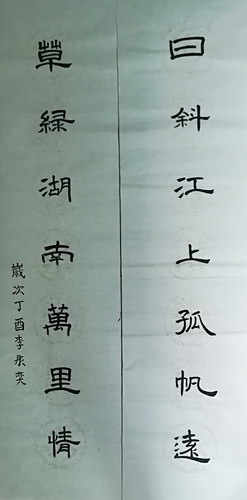 日斜江上孤帆遠
草綠湖南萬里情
歲次丁酉李永奕